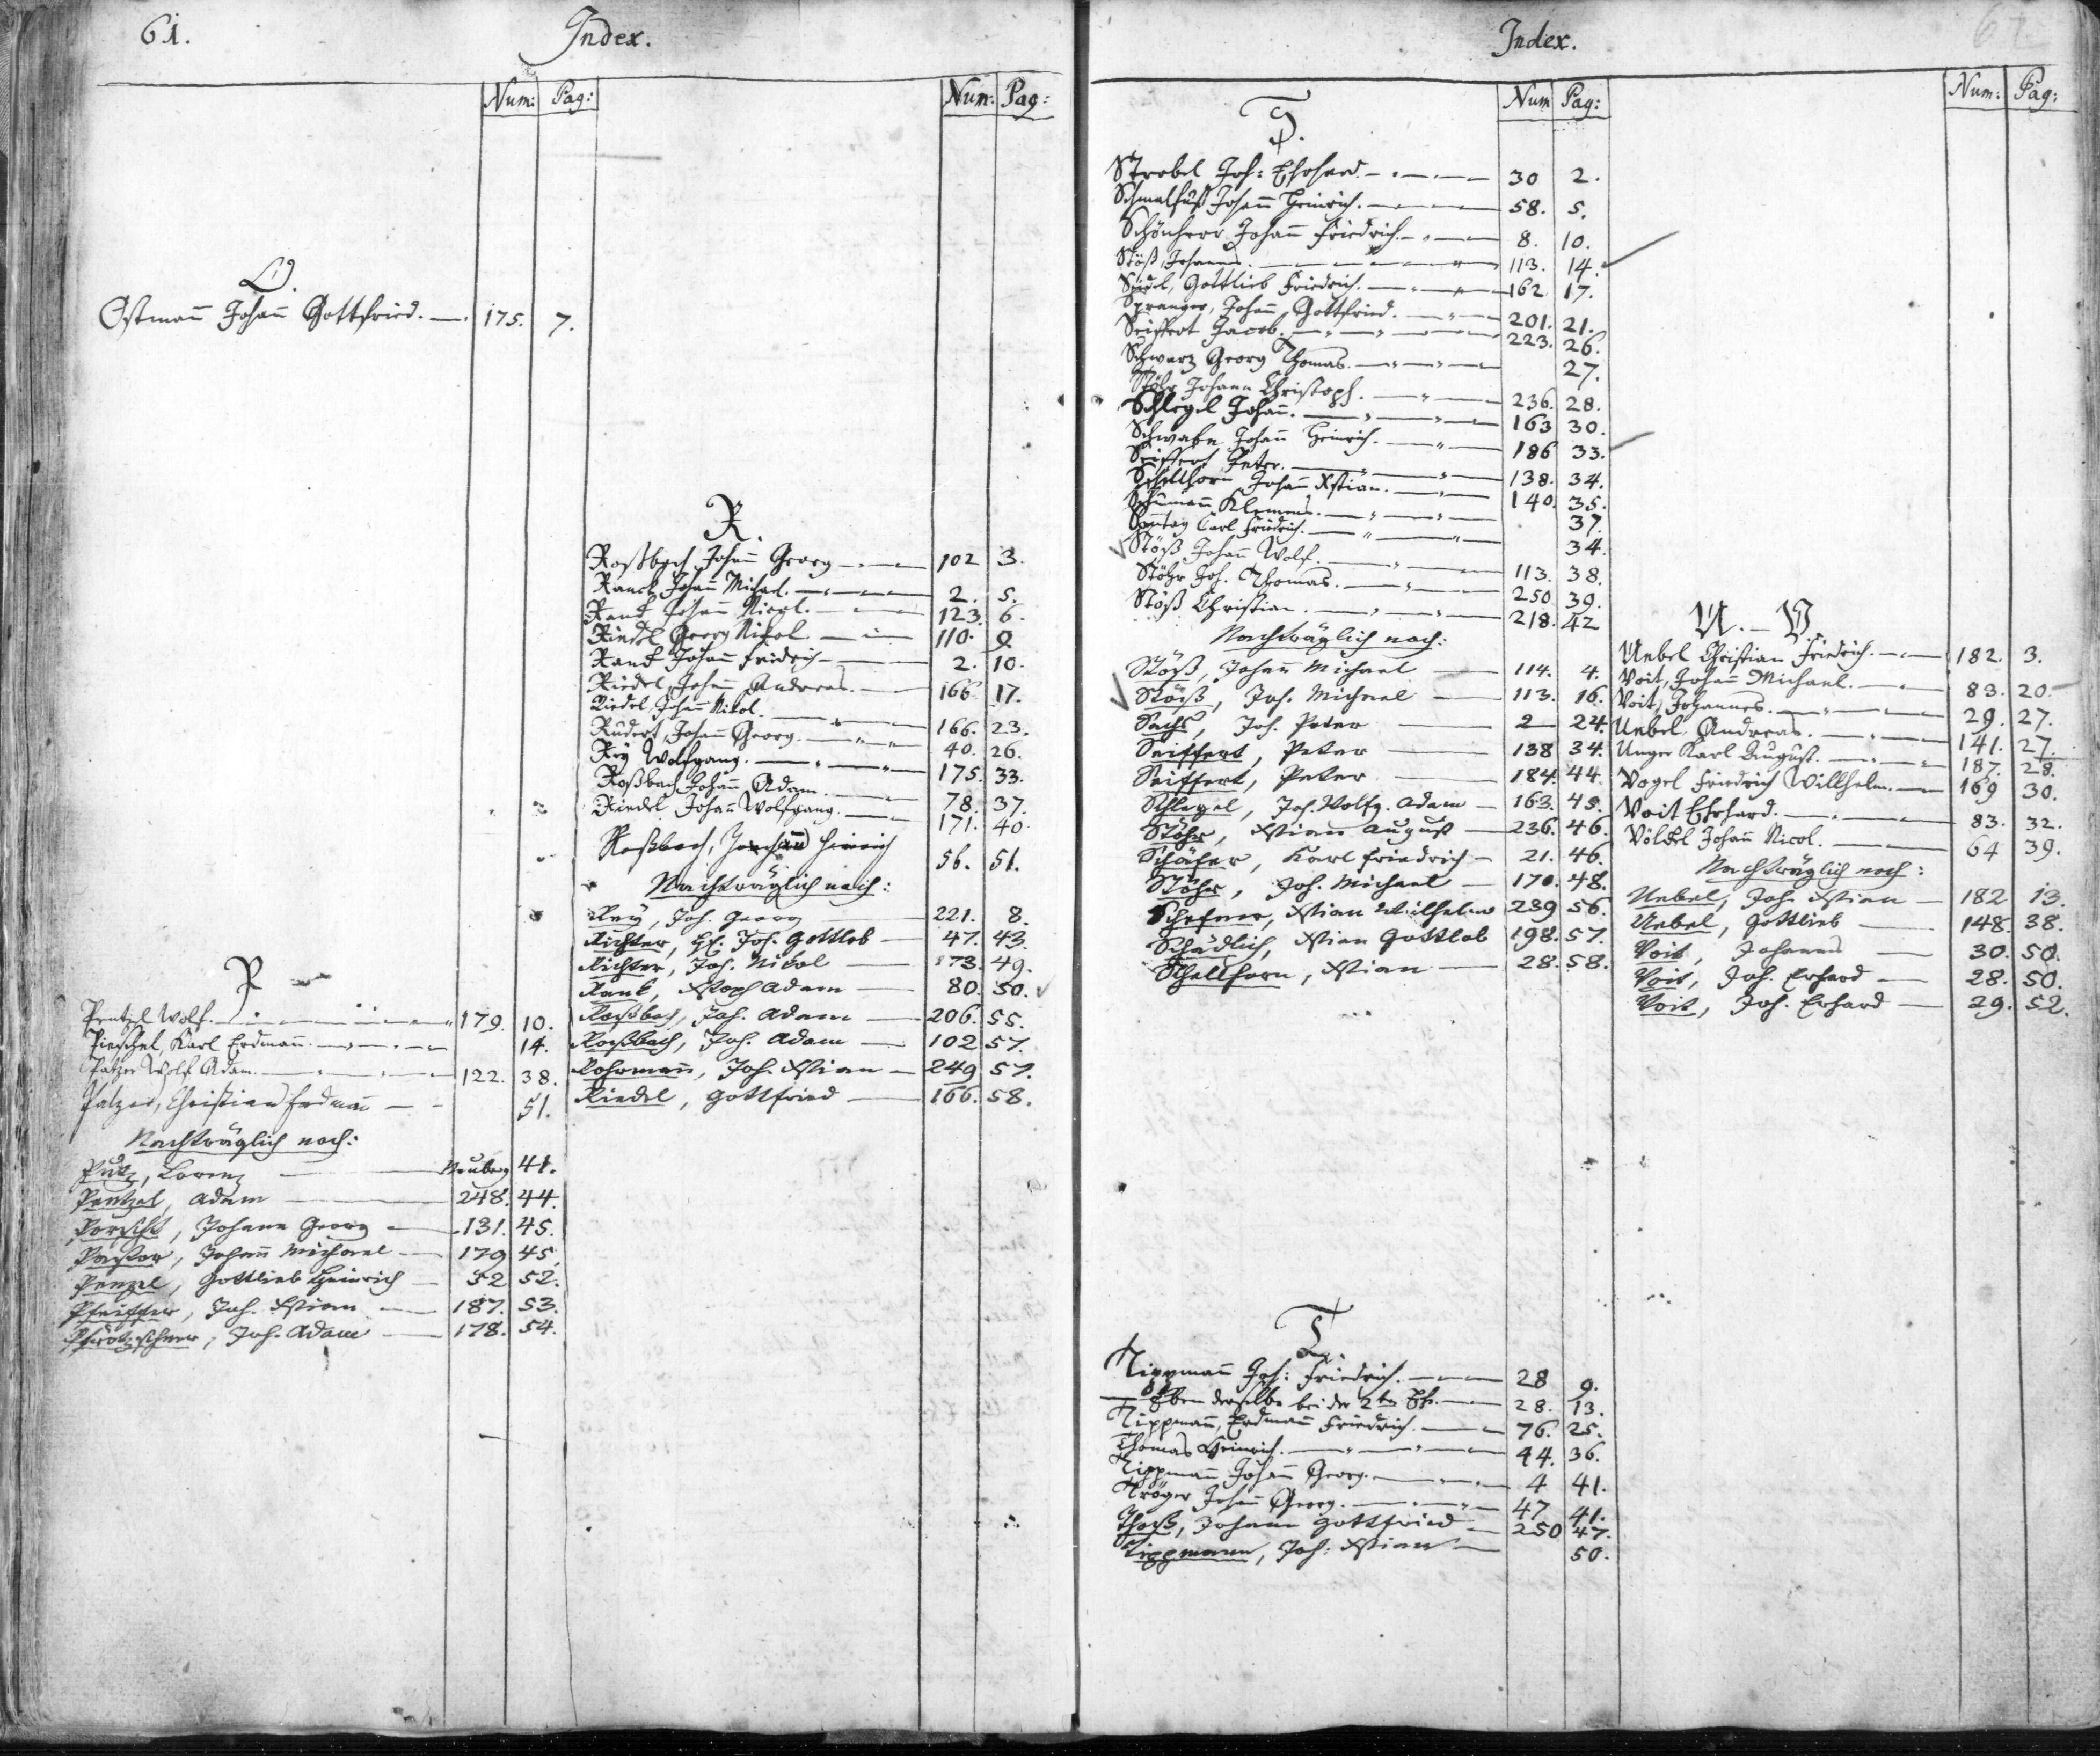 61.
Index.
Num: Pag:
O.
Ostmann̄ Johann̄ Gottfried. 175. 7.
P
Pentzel Wolf. 179. 10.
Pieschel, Karl Erdmann̄. 14.
Patzer Wolf Adam. 122. 38.
Patzer, Christian Erdmann̄ 51.
Nachträglich noch:
Putz, Lorenz Neuberg 41.
Pentzel, Adam 248. 44.
Porscht, Johann Georg 131. 45.
Pastor, Johann̄ Michael 179 45.
Penzel, Gottlieb Heinrich 52 52.
Pfeiffer, Joh. Xstian 187. 53.
Pfrötzschner, Joh. Adam 178. 54.
Num: Pag:
R.
Roßbach Johann̄ Georg 102 3.
Ranck Johann̄ Michael. 2. 5.
Rank Johann̄ Nicol. 123. 6.
Riedel Georg Nikol. 110. 9.
Rank Johann̄ Friedrich 2. 10.
Riedel, Johann̄ Andreas. 166. 17.
Riedel, Johann̄ Nikol. 166. 23.
Rudert, Johann̄ Georg. 40. 26.
Reÿ Wolfgang. 175. 33.
Roßbach Johann̄ Adam. 78. 37.
Riedel Johann̄ Wolfgang. 171. 40.
Roßbach, Johann Heinrich 56. 51.
Nachträglich noch:
Reÿ, Joh. Georg 221. 8.
Richter, Joh. Gottlob 47. 43.
Richter, Joh. Nikol 173. 49.
Rank, Xstoph Adam 80. 50.
Roßbach, Joh. Adam 206. 55.
Roßbach, Joh. Adam 102 57.
Rohrmann̄, Joh. Xstian 249 57.
Riedel, Gottfried 166. 58.
Index.
62
Num Pag:
S.
Strobel Joh: Ehrhard. 30 2.
Schmalfuß Johann̄ Heinrich. 58. 5.
Schönherr Johann̄ Friedrich. 8. 10.
Stöß, Johannes. 113. 14.
Seidel, Gottlieb Friedrich. 162 17.
Spranger, Johann̄ Gottfried. 201. 21.
Seiffert Jacob. 223. 26.
Schwarz Georg Thomas. 27.
Stöhr Johann Christoph. 236. 28.
Schlegel Johann̄. 163 30.
Schwabe Johann̄ Heinrich. 186 33.
Seiffert Peter. 138. 34.
Schellhorn Johann̄ Xstian. 140. 35.
Schumann̄ Klemens. 37.
Sonntag Carl Friedrich. 34.
Stöß Johann̄ Wolf. 113. 38.
Stöhr Joh. Thomas. 250 39.
Stöß Christian. 218. 42
Nachträglich noch:
Stöß, Johann Michael 114. 4.
Stöß, Joh. Michael 113. 16.
Sachs, Joh. Peter 2 24.
Seiffert, Peter 138 34.
Seiffert, Peter 184. 44.
Schlegel, Joh. Wolfg. Adam 163. 45.
Stöhr, Xstian August 236. 46.
Schäfer, Karl Friedrich 21. 46.
Stöhr, Joh. Michael 170. 48.
Schefner, Xstian Wilhelm 239 56.
Schädlich, Xstian Gottlob 198. 57.
Schellhorn, Xstian 28. 58.
T.
Tippmann̄ Joh: Friedrich. 28 9.
Eben derselbe bei der 2ten Eh. 28. 13.
Tippmann̄, Erdmann̄ Friedrich. 76. 25.
Thomas Heinrich. 44. 36.
Tippmann̄ Johann̄ Georg. 4 41.
Tröger Johann̄ Georg. 47 41.
Thoß, Johann Gottfried 250 47.
Tippmann, Joh: Xstian 50.
Num: Pag:
U. – V.
Uebel Christian Friedrich. 182. 3.
Voit, Johann̄ Michael. 83. 20.
Voit, Johannes. 29. 27.
Uebel, Andreas. 141. 27.
Unger Karl August. 187. 28.
Vogel Friedrich Willhelm. 169 30.
Voit Ehrhard. 83. 32.
Völckel Johann̄ Nicol. 64 39.
Nachträglich noch:
Uebel, Joh. Xstian 182 13.
Uebel, Gottlieb 148. 38.
Voit, Johannes 30. 50.
Voit, Joh. Erhard 28. 50.
Voit, Joh. Erhard 29. 52.